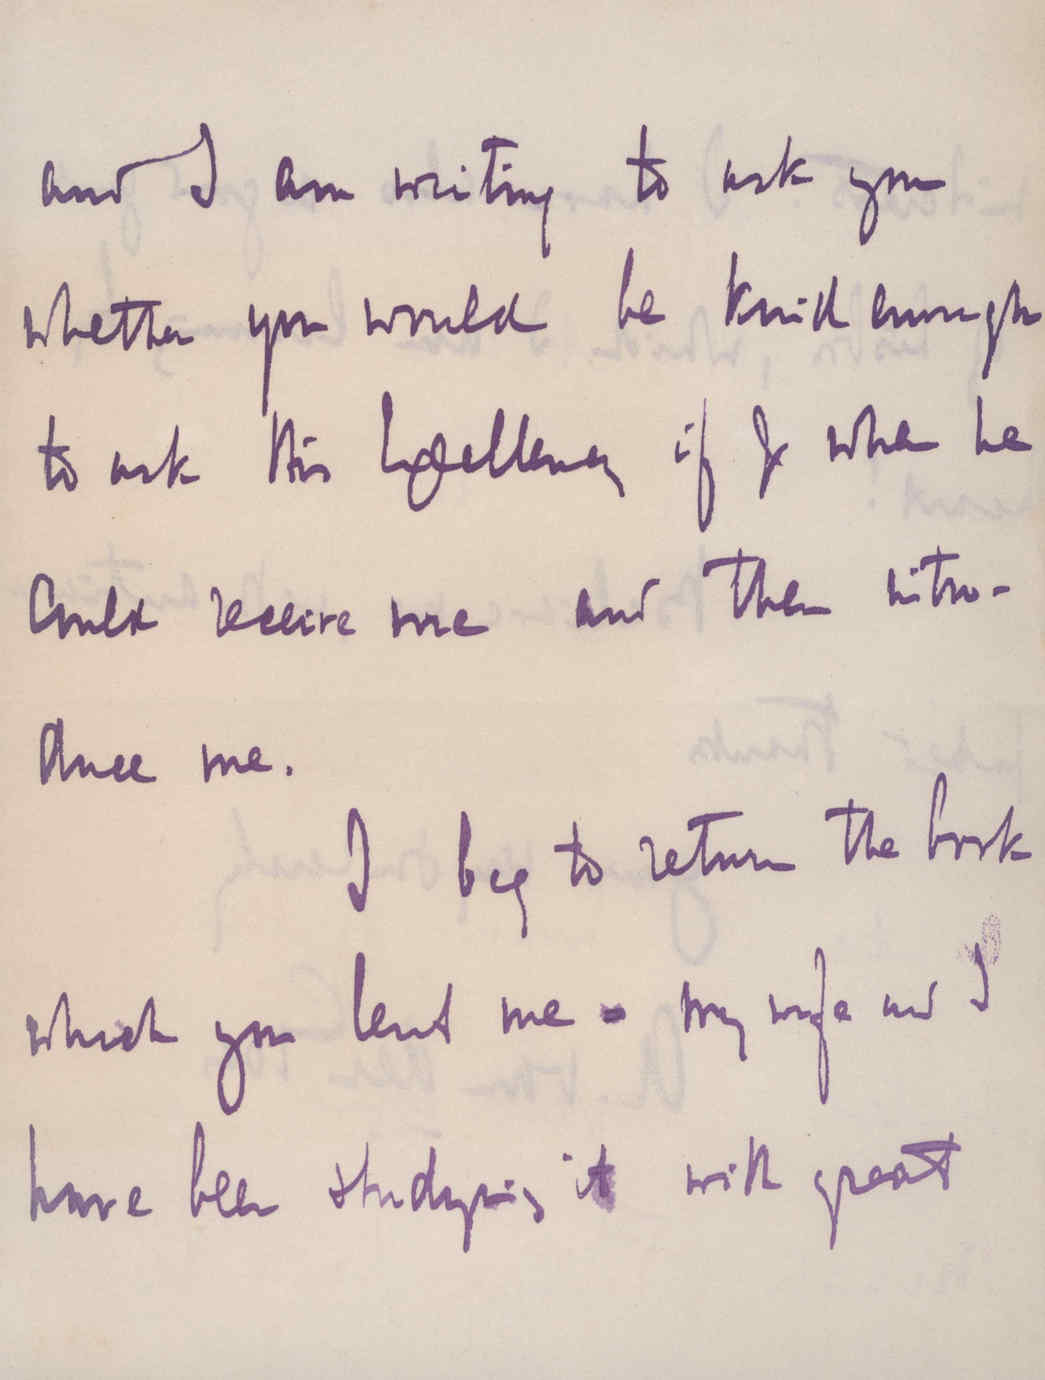 and I am writing to ask you
whether you would be kind enough
to ask His Excellency if & when he
could receive me and then intro-
duce me.
I beg to return the book
which you lent me - my wife and I
have been studying it with great